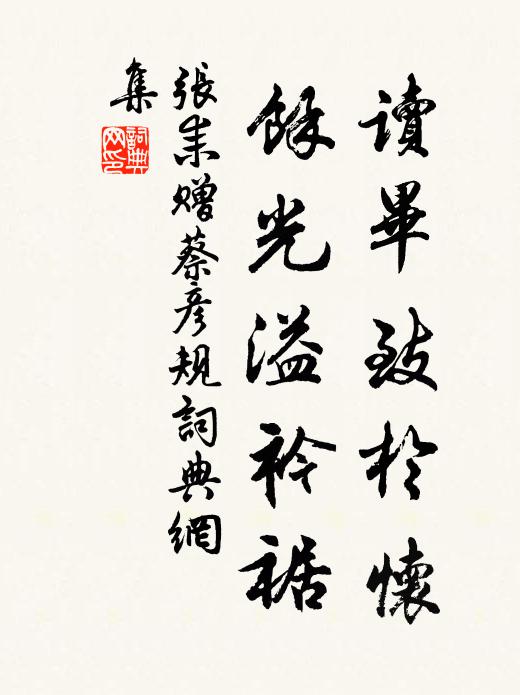 讀畢致於懷
餘光溢衿裾
張耒贈蔡彦規詞典網
集
詞典网印